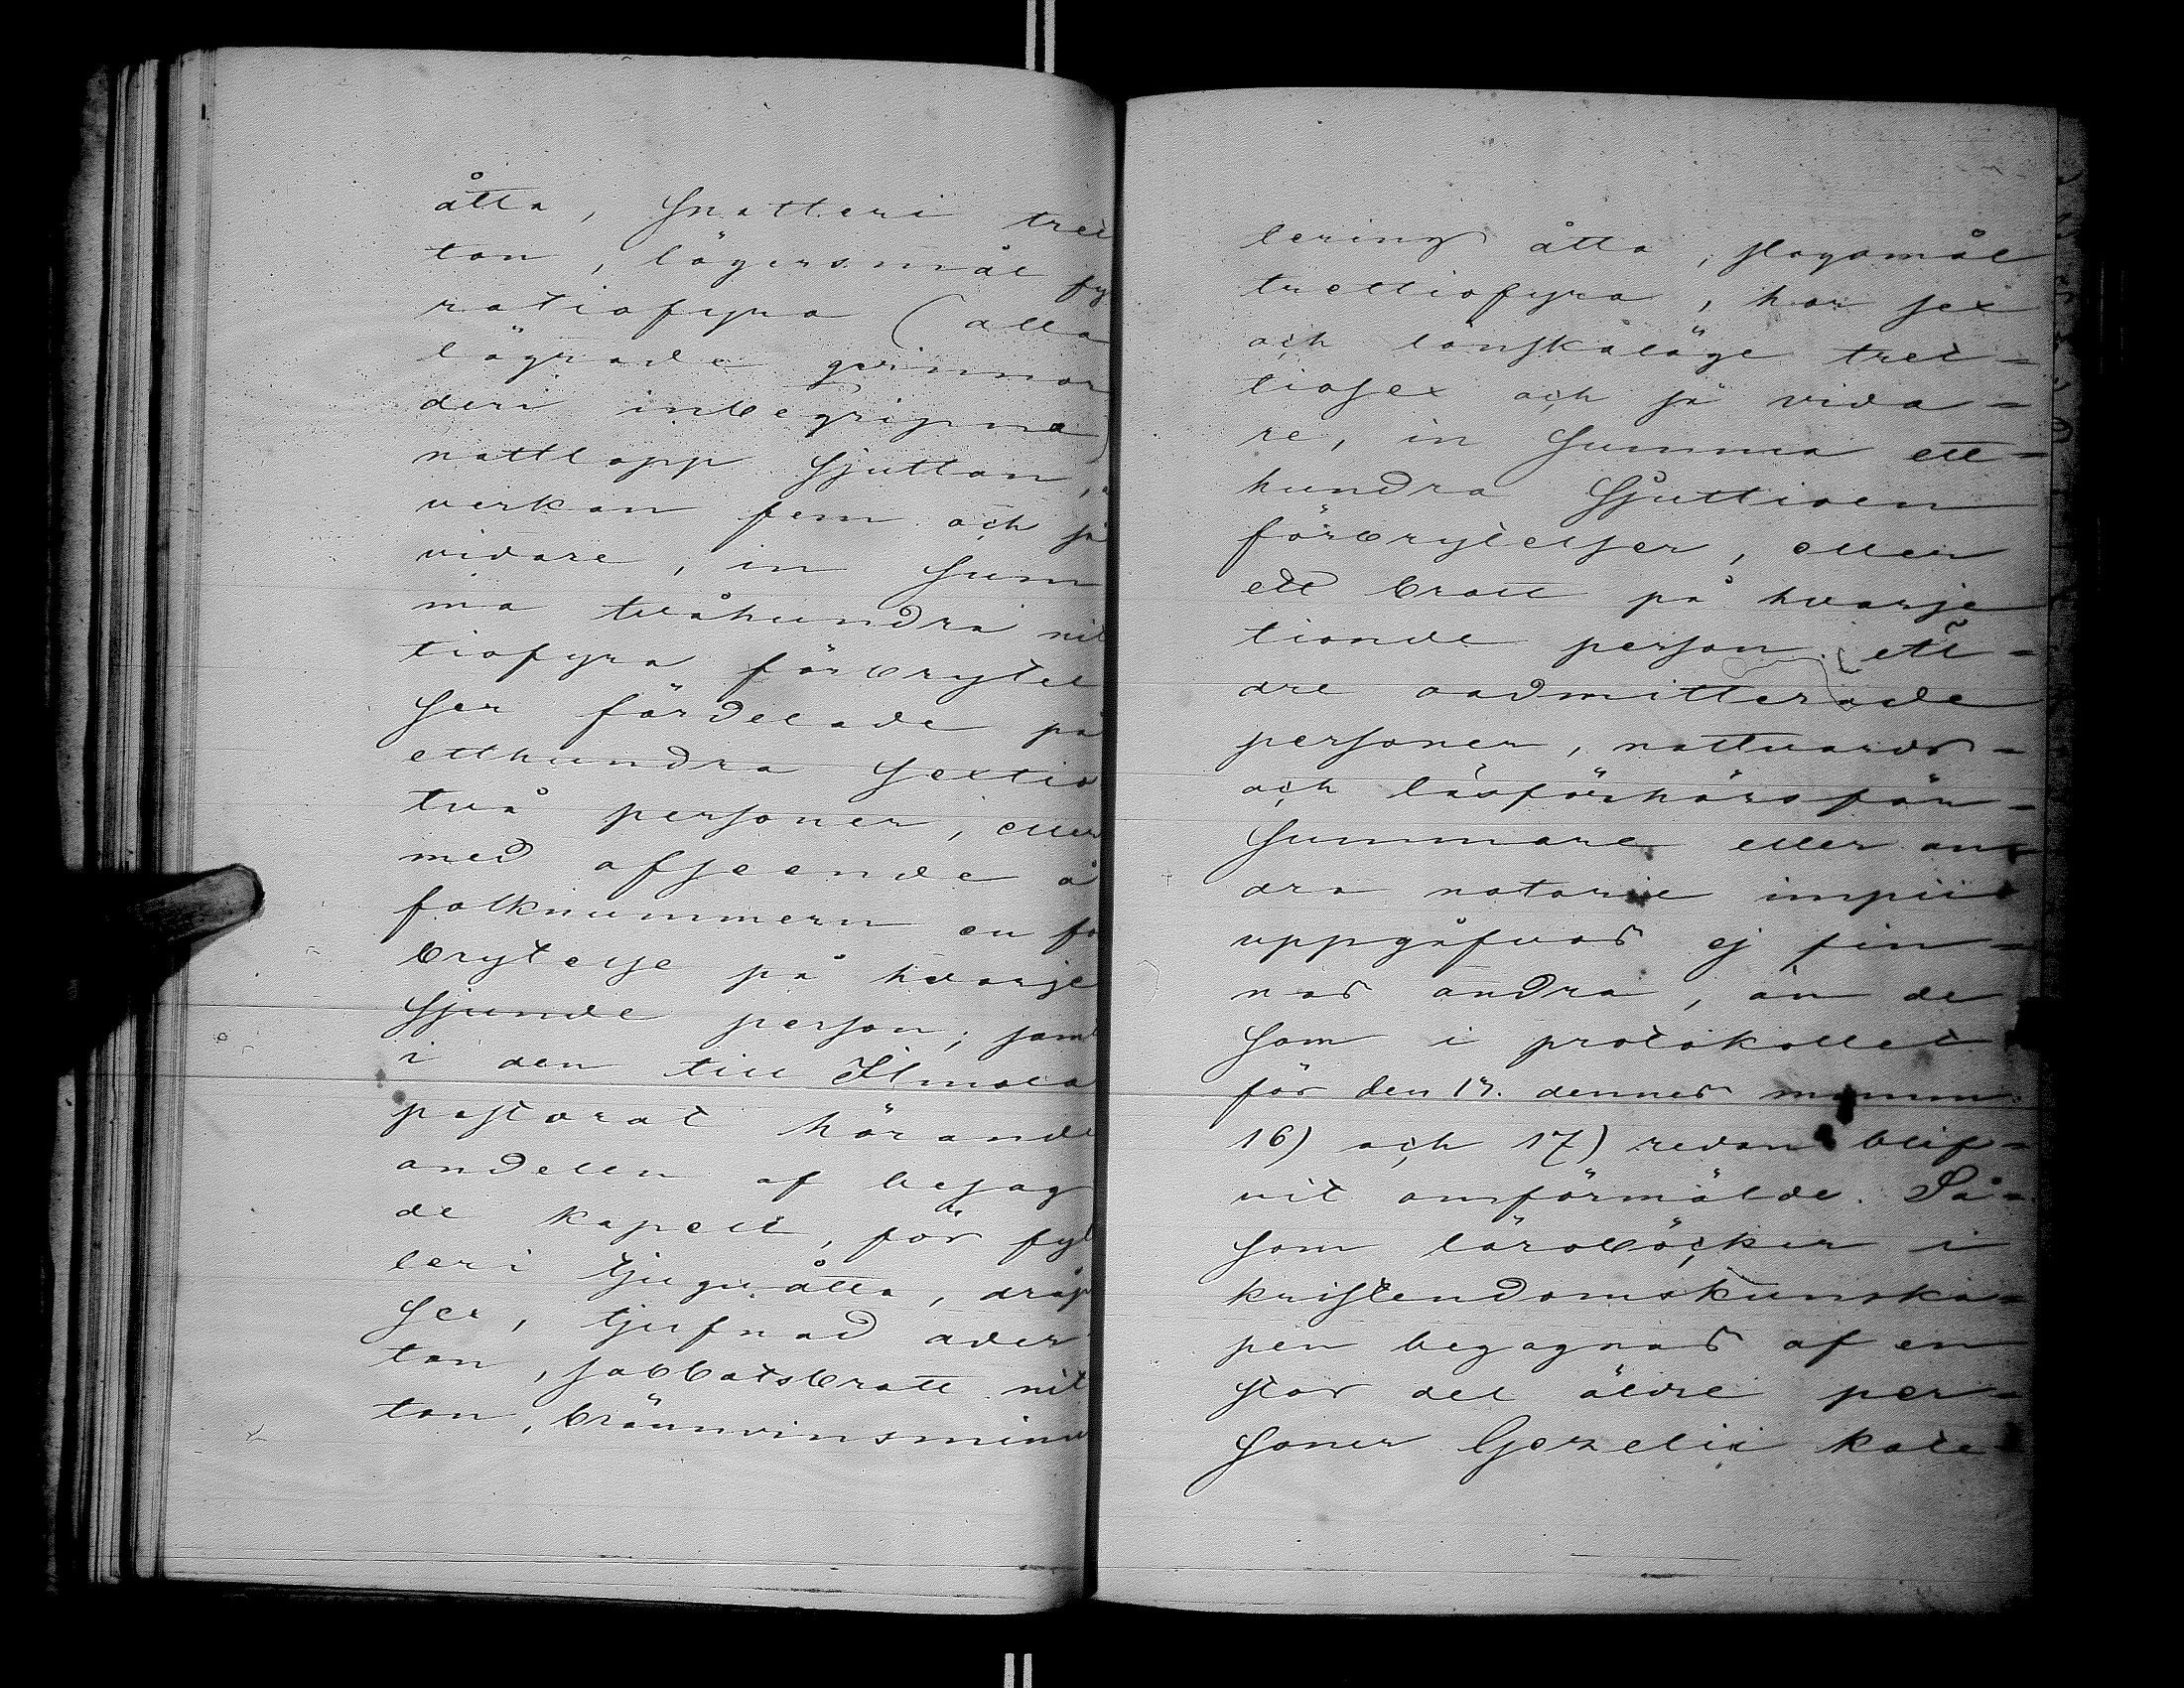 åtta, snatteri tret
ton, lägersmål fy
ratiofyra (alla
lägrade qvinnor
deri inbegripna)
nattlopp sjutton,
verkan fem och så
vidare, in sum
ma tvåhundra nit
tiofyra förbrytel
ser fördelade på
etthundra sextio
två personer, eller
med afseende å
folknummern en fö
brytelse på hvarje
sjunde person; samt
i den till Ilmola
pastorat hörande
andelen af besag
de kapell, för fyl
leri tjuguåtta, dråp
sex, tjufnad ader
ton, sabbatsbrott nit
ton, bränvinsminu
lering åtta, slagsmål
trettiofyra, hor sex
och lönskaläge tret-
tiosex och så vida-
re, in summa ett-
hundra sjuttioen
förbrytelser, eller
ett brott på hvarje
tionde person. äl-
dre oadmitterade
personer, nattvards-
och läsförhörsför-
summare eller an-
dra notorie impii
uppgåfvos ej fin-
nas andra, än de
som i protokollet
för den 17. dennes mom.
16) och 17) redan blif-
vit omförmälde. Så-
som läroböcker i
kristendomskunska-
pen begagnas af en
stor del äldre per-
soner Gezelii kate-